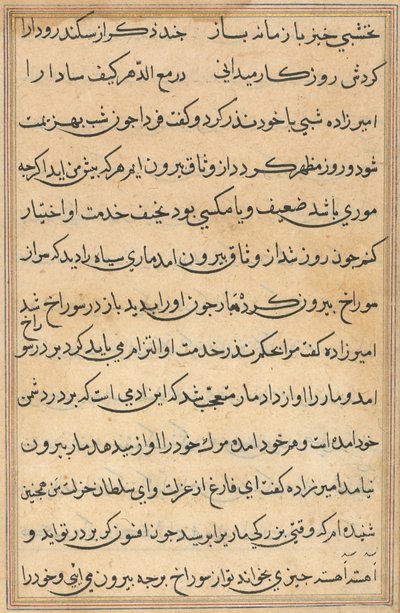 نخشبی خیز با زمانه بساز چند ذکر از سکندر و دارا
کردش روزکار میدانی در مع الدهر کیف ما دارا
امیرزاده شبی با خود نذر کرد و کفت فردا چون شب بهزیمت
شود و روز مظهر کردد از وثاق بیرون ایم هر که پیش من اید اکرچه
موری باشد ضعیف و یا مکسی بود نحیف خدمت او اختیار
کنم چون روز شد از وثاق بیرون امد ماری سیاه را دید که سر از
سوراخ بیرون کرده مار چون او را بدید باز در سوراخ شد
امیرزاده کفت مرا بحکم نذر خدمت او التزام می باید کرد بر در سوراخ
امد و مار را اواز داد مار متعجب شد که این ادمی است که بر در دشمن
خود امده است و هم خود امده مرک خود را اواز میدهد مار بیرون
نیامد امیرزاده کفت ای فارغ از عزلت و ای سلطان من همچنین
شنیده ام که وقتی بزرکی مار را پرسید چون افسون کر بر در تو اید و
آهسته آهسته چیزی بخواند تو از سوراخ برجه بیرون می ایی و خود را